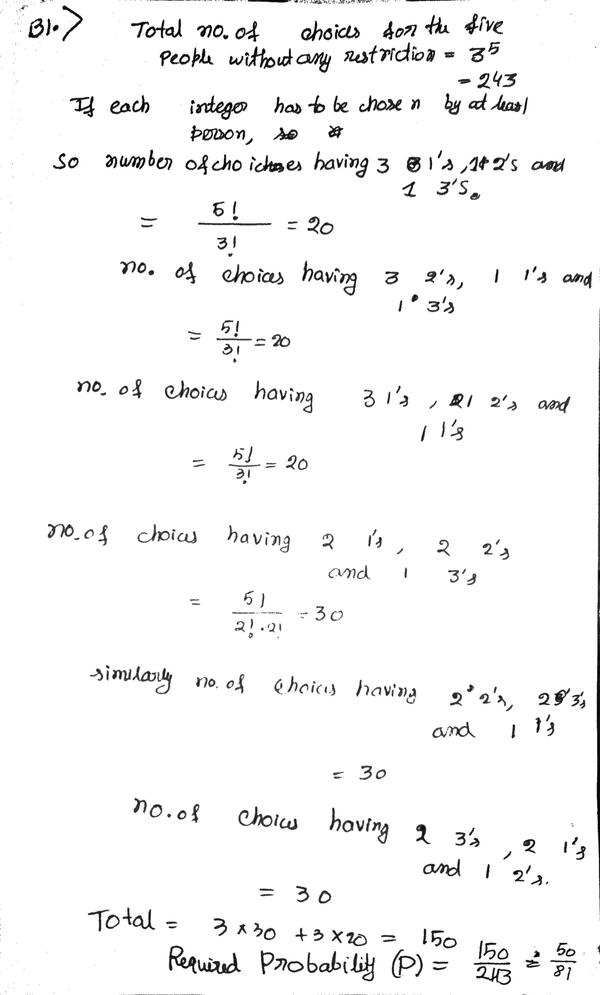 B1.> Total no. of choices for the five
people without any restriction = 3⁵
= 243
If each integer has to be chosen by at least
person, so
So number of choices having 3 1's, 1 2's and
1 3's.
= 5!/3! = 20
no. of choices having 3 2's, 1 1's and
1 3's
= 5!/3! = 20
no. of choices having 3 1's, 1 2's and
1 1's
= 5!/3! = 20
no. of choices having 2 1's, 2 2's
and 1 3's
= 5!/2!.2! = 30
similarly no. of choices having 2 2's, 2 3's
and 1 1's
= 30
no. of choices having 2 3's, 2 1's
and 1 2's.
= 30
Total = 3 × 30 + 3 × 20 = 150
Required Probability (P) = 150/243 = 50/81